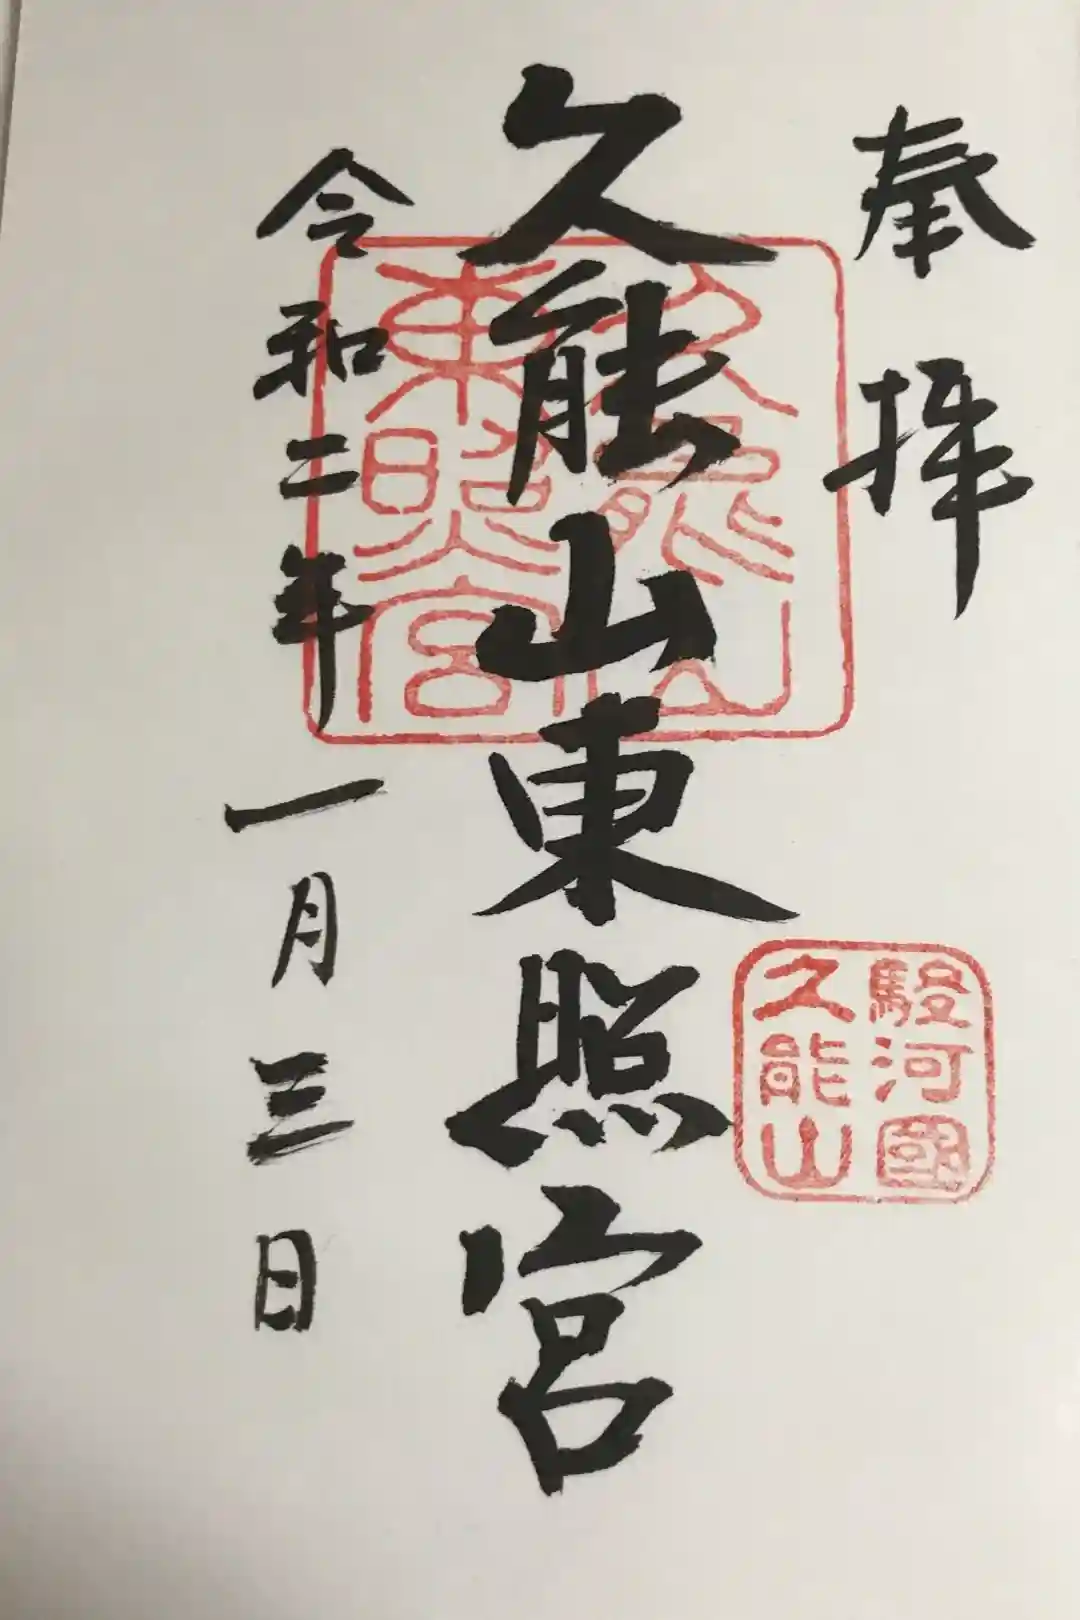 奉拝
駿河國
久能山
久能山東照宮
久能山
東照宮
令和二年一月三日